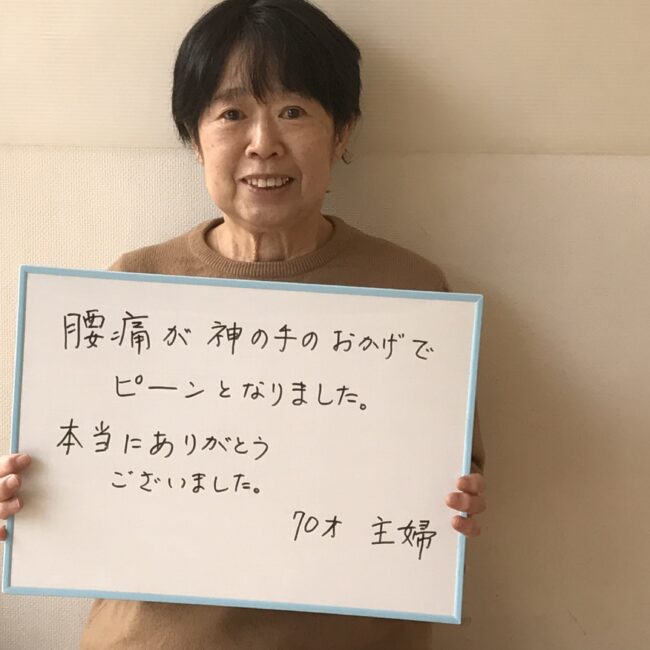 腰痛が神の手のおかげで
ピーンとなりました。
本当にありがとう
ございました。
70才 主婦